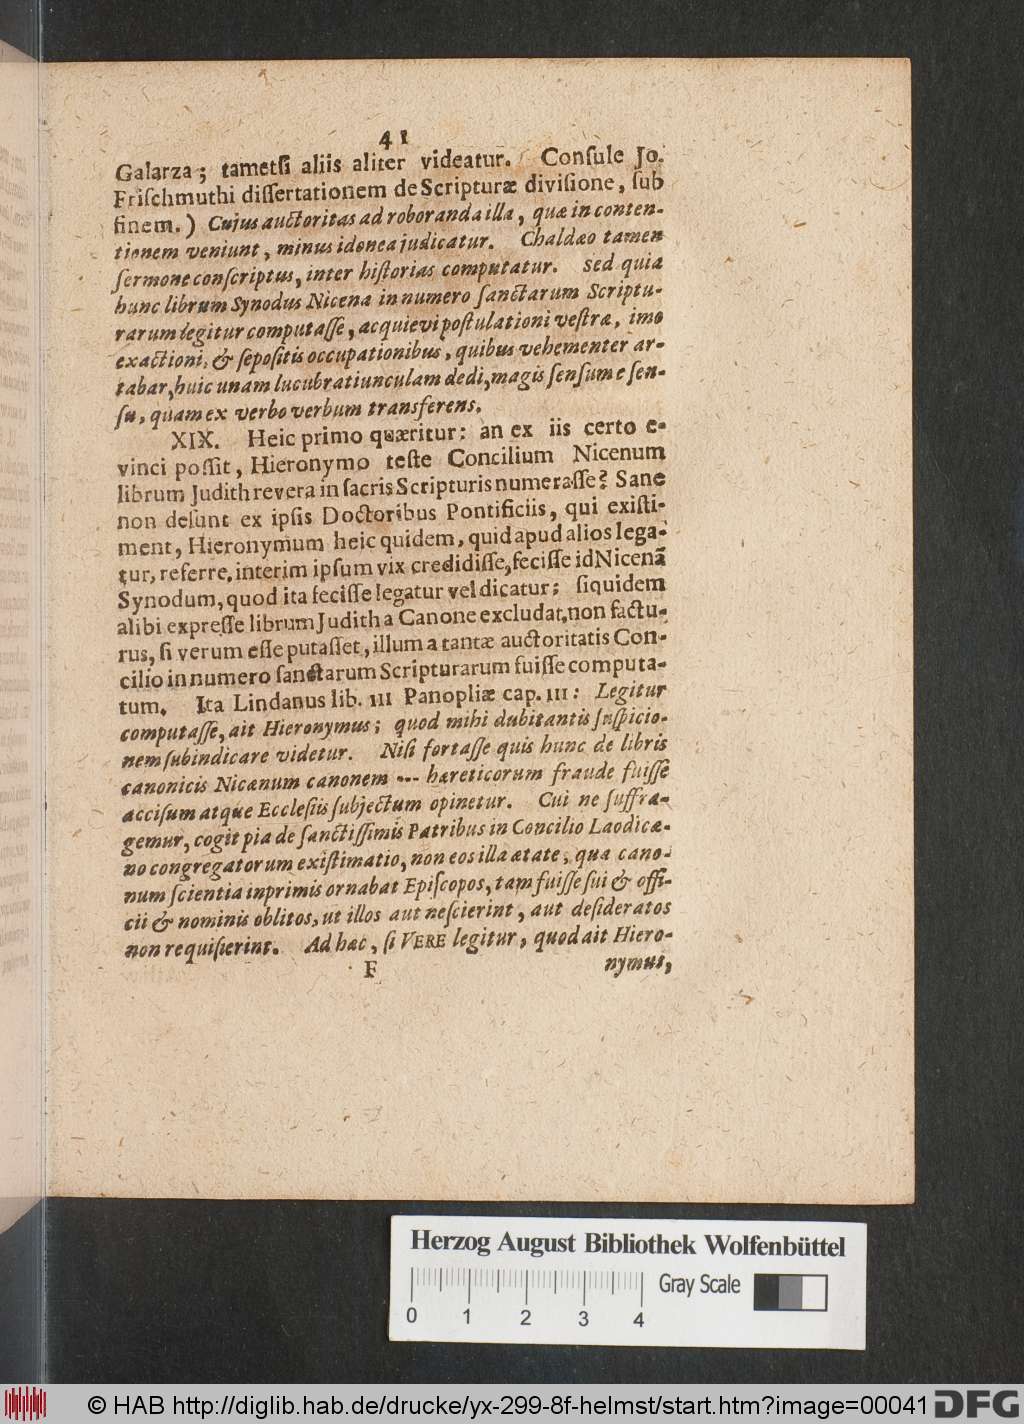 41
Galarza; tametſi aliis aliter videatur. Conſule Jo.
Friſchmuthi diſſertationem de Scripturæ diviſione, ſub
finem.) Cujus auctoritas ad roboranda illa, quæ in conten-
tionem veniunt, minus idonea judicatur. Chaldæo tamen
ſermone conſcriptus, inter hiſtorias computatur. Sed quia
hunc librum Synodus Nicena in numero ſanctarum Scriptu-
rarum legitur computaſſe, acquievi poſtulationi veſtræ, imo
exactioni, & ſepoſitis occupationibus, quibus vehementer ar-
tabar, huic unam lucubratiunculam dedi, magis ſenſum e ſen-
ſu, quam ex verbo verbum transferens.
XIX. Heic primo quæritur: an ex iis certo e-
vinci poſſit, Hieronymo teſte Concilium Nicenum
librum Judith revera in ſacris Scripturis numeraſſe? Sane
non deſunt ex ipſis Doctoribus Pontificiis, qui exiſti-
ment, Hieronymum heic quidem, quid apud alios lega-
tur, referre, interim ipſum vix credidiſſe, feciſſe id Nicenã
Synodum, quod ita feciſſe legatur vel dicatur; ſiquidem
alibi expreſſe librum Judith a Canone excludat, non factu-
rus, ſi verum eſſe putaſſet, illum a tantæ auctoritatis Con-
cilio in numero ſanctarum Scripturarum fuiſſe computa-
tum. Ita Lindanus lib. III Panopliæ cap. III: Legitur
computaſſe, ait Hieronymus; quod mihi dubitantis ſuſpicio-
nem ſubindicare videtur. Niſi fortaſſe quis hunc de libris
canonicis Nicænum canonem --- hæreticorum fraude fuiſſe
acciſum atque Eccleſiis ſubjectum opinetur. Cui ne ſuffra-
gemur, cogit pia de ſanctiſſimis Patribus in Concilio Laodicæ-
no congregatorum exiſtimatio, non eos illa ætate, qua cano-
num ſcientia inprimis ornabat Epiſcopos, tam fuiſſe ſui & offi-
cii & nominis oblitos, ut illos aut neſcierint, aut deſideratos
non requiſierint. Ad hæc, ſi VERE legitur, quod ait Hiero-
F nymus,
Herzog August Bibliothek Wolfenbüttel
Gray Scale
0 1 2 3 4
© HAB http://diglib.hab.de/drucke/yx-299-8f-helmst/start.htm?image=00041 DFG